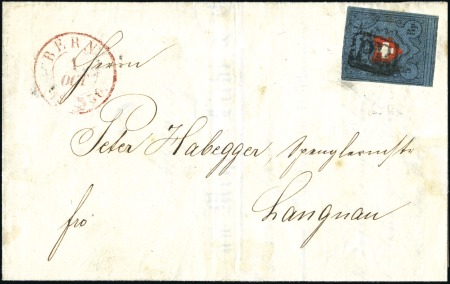 BERN
1
OCT
Rp
P.P.
Herrn
Peter Habegger Spenglermstr
Langnau
fro